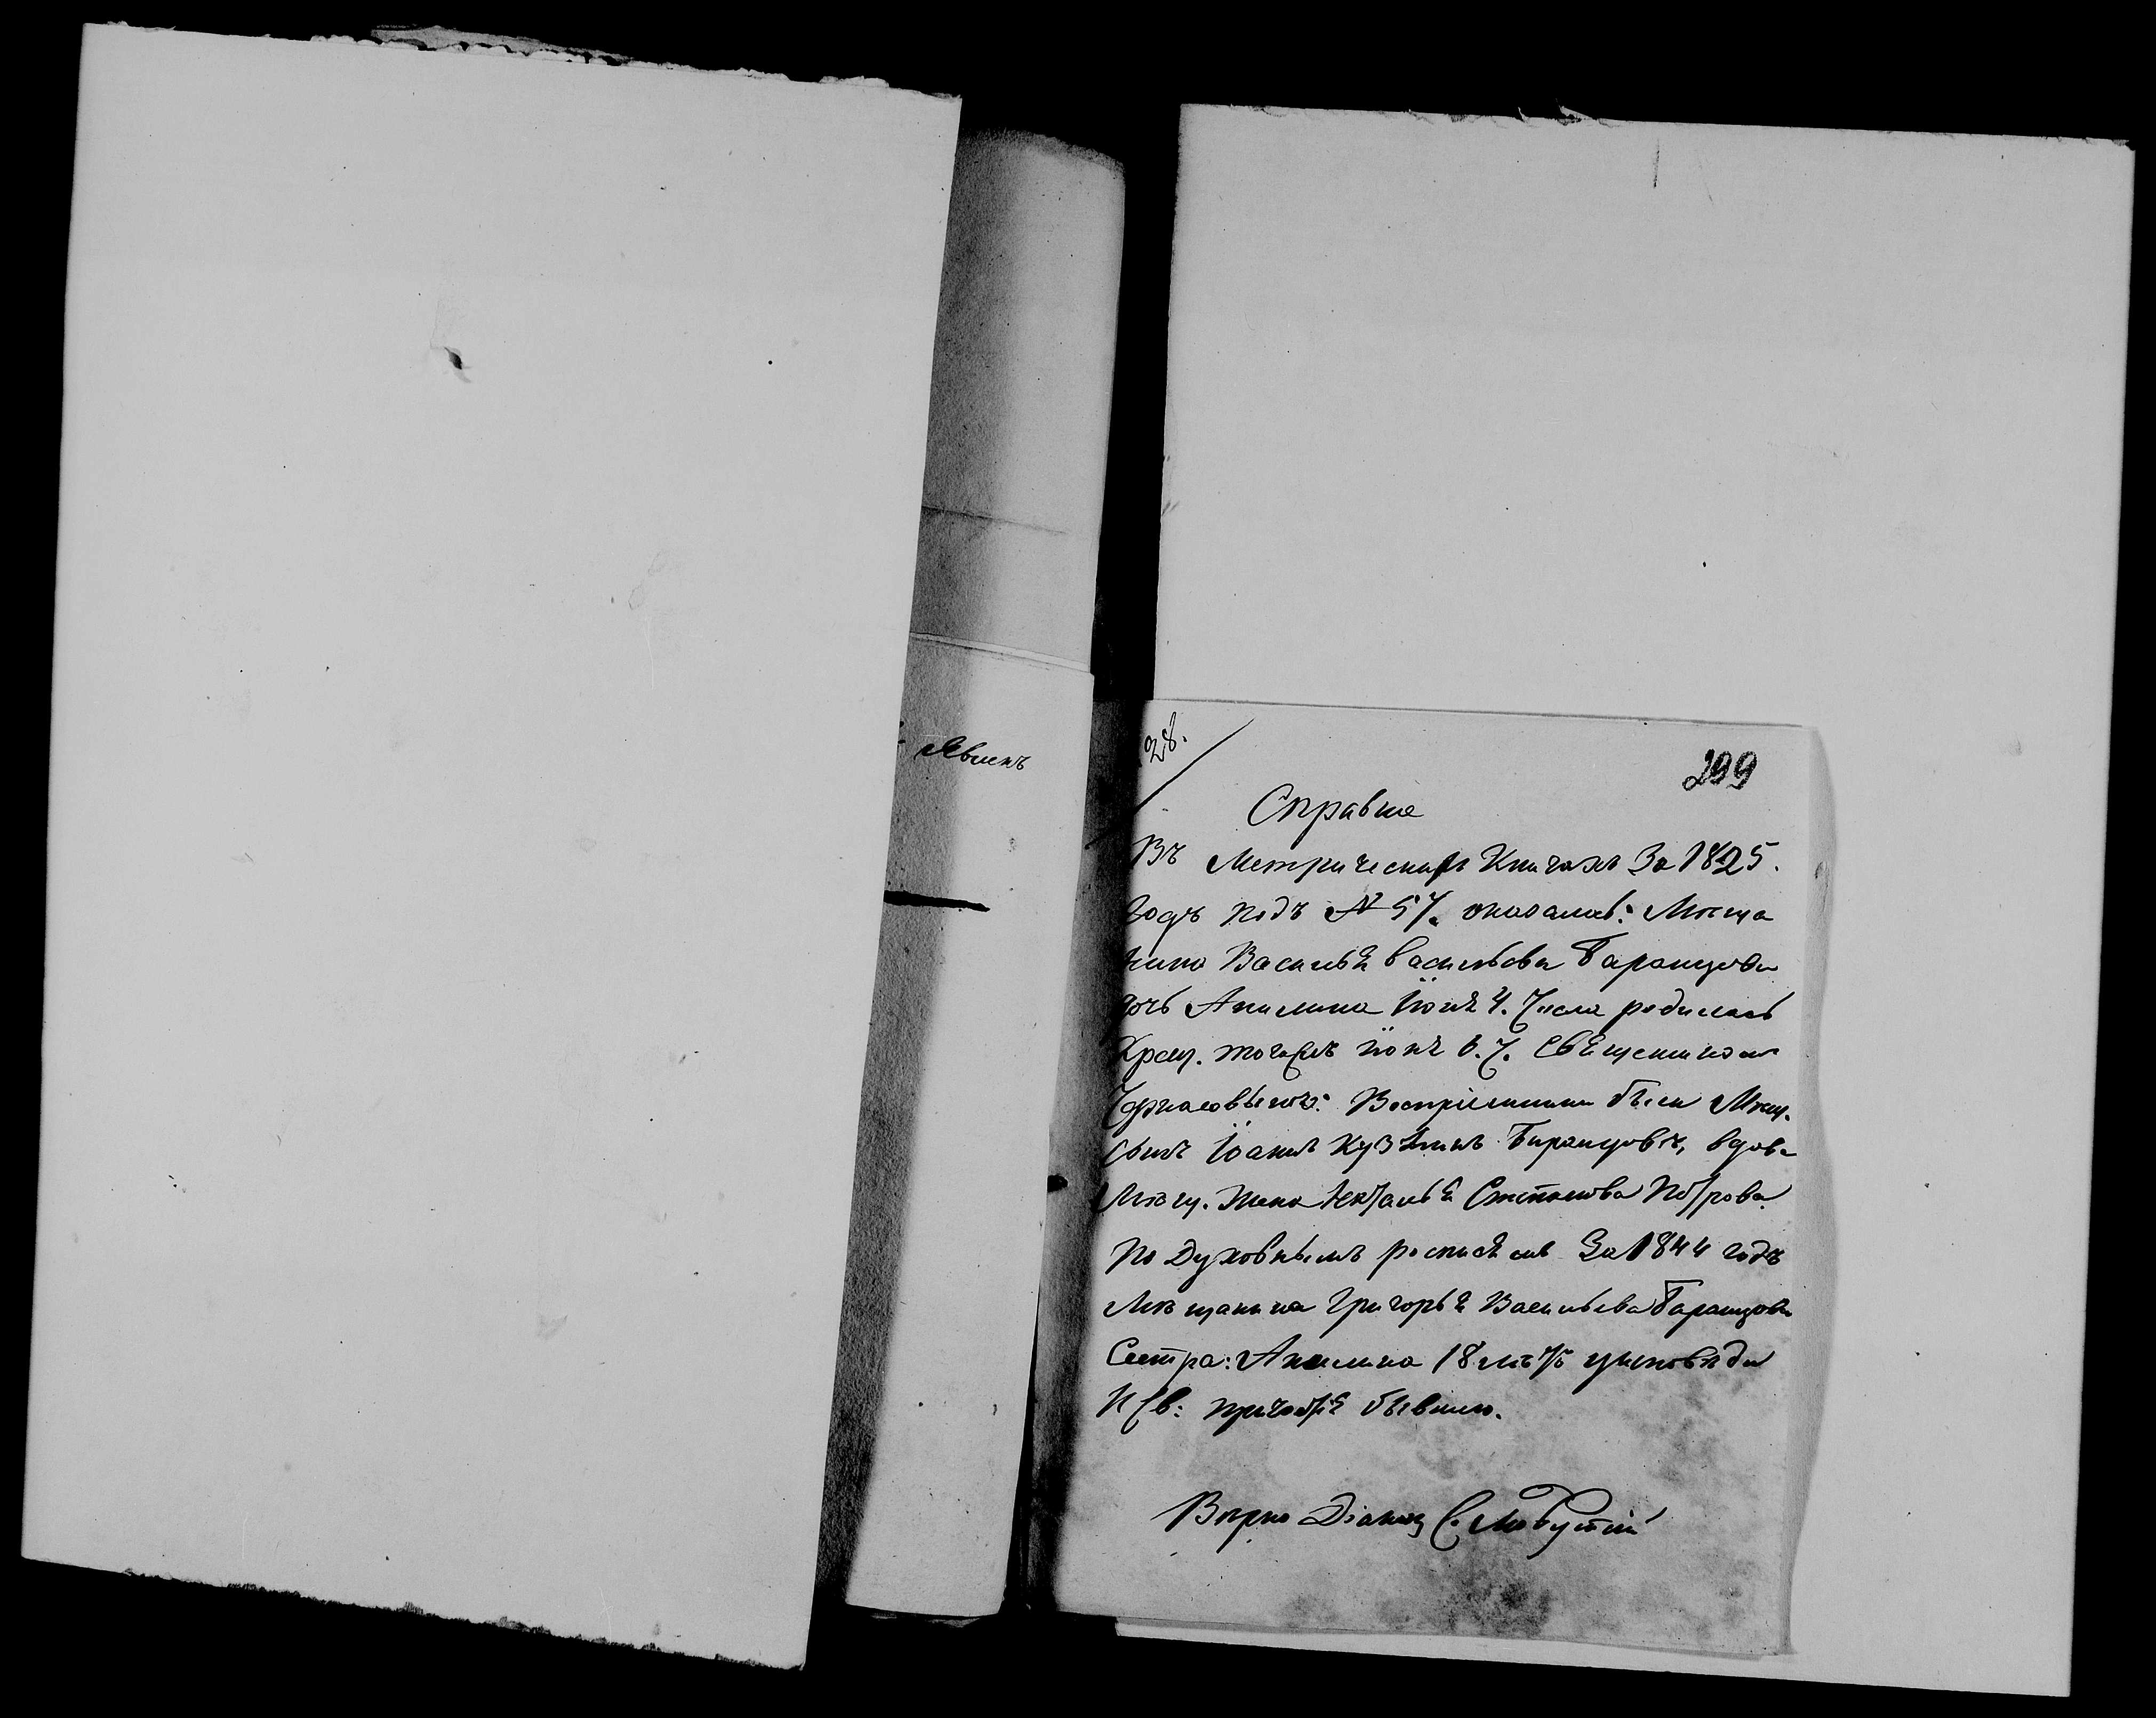 Явикъ
28.
299
Справка
Въ Метрическихъ Книгахъ За 1825.
Годъ подъ № 57. оказалась: Мѣща
нина Василья васильева Баранцова
дочь Акилина Іюня 4. Числа родилась
Крещ. тогожъ іюня 6. Ч. Священникомъ
Воспріемники были Мѣщ.
сынъ Іоаннъ Кузминъ Баранцовъ, вдова
Мѣщ. Жена Наталья Степанова Петрова.
По Духовнымъ росписямъ За 1844 годъ
Мѣщанина Григорья Васильева Баранцова
Сестра: Акилина 18 лѣтъ уисповѣди
И Св: причастія бывшею.
Вѣрно Діаконъ С.